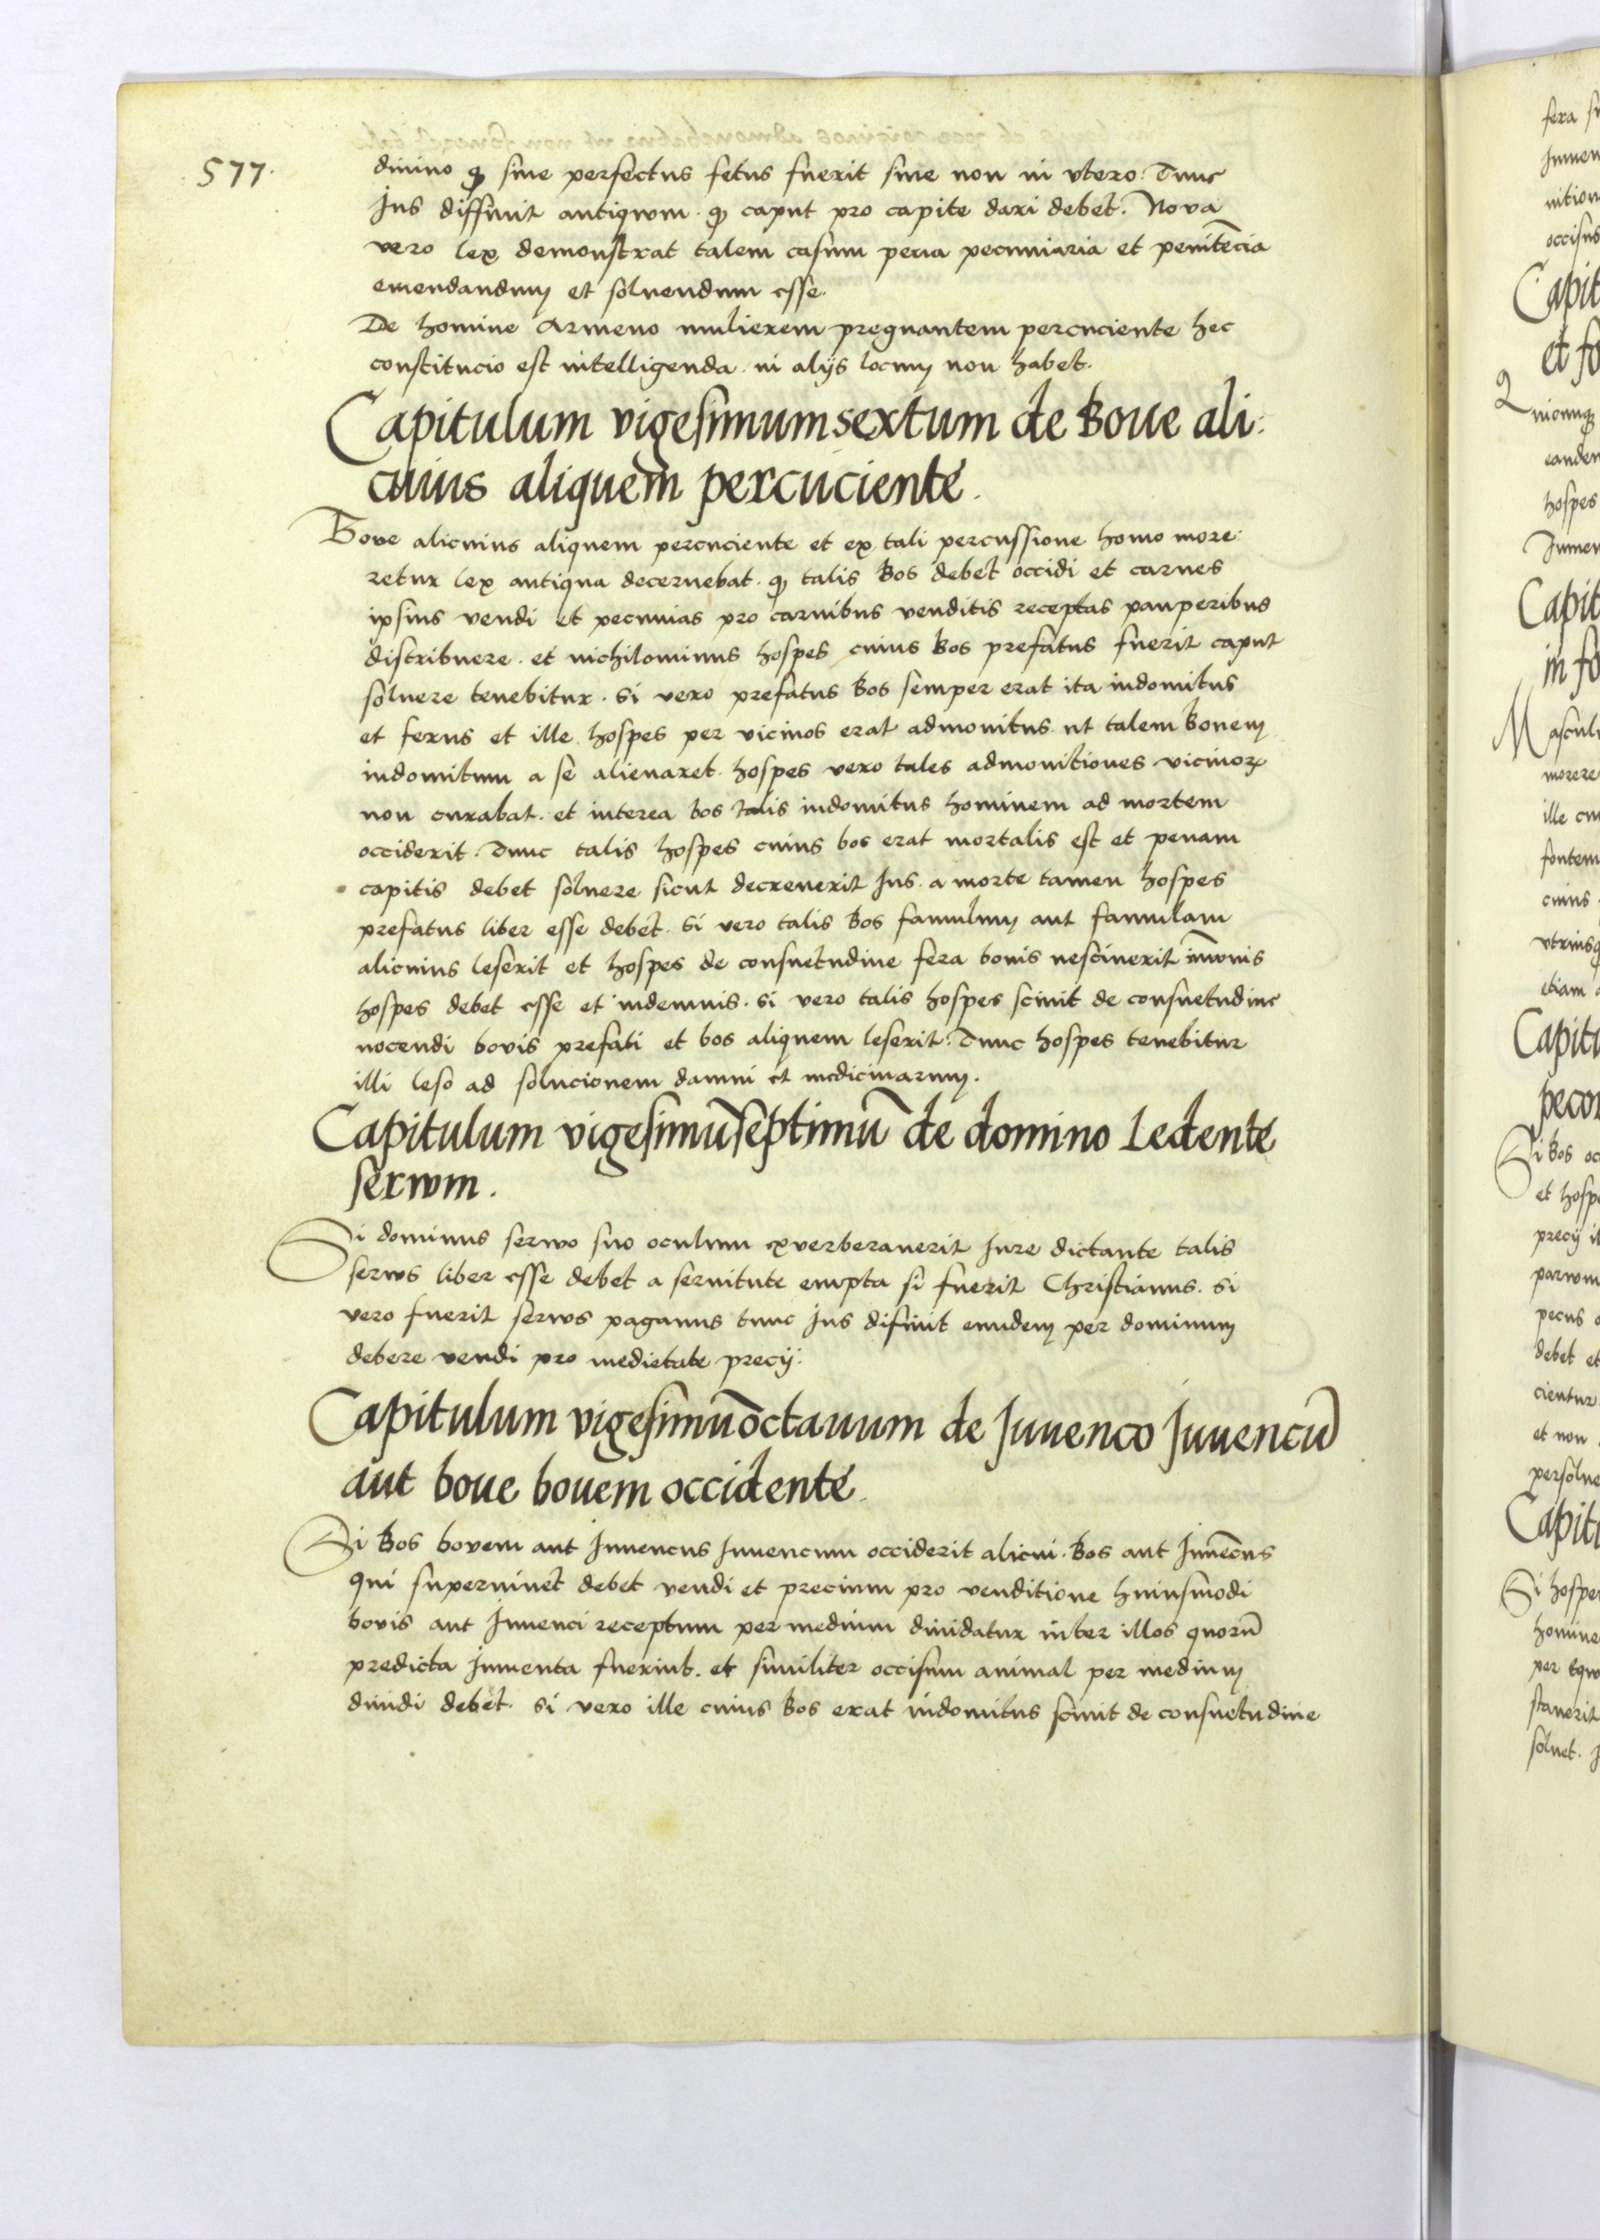 577.
diuino ꝙ siue perfectus fetus fuerit siue non in vtero: Tunc
Jus diffinit antiqwm. ꝙ caput pro capite dari debet. Nova
vero lex demonstrat talem casum pena pecuniaria et penitẽcia
emendandum et soluendum esse.
De homine Armeno mulierem pregnantem percuciente hec
constitucio est intelligenda. in alijs locum non habet.
Capitulum vigesimumsextum de Boue ali:
cuius aliquem percuciente.
Bove alicuius aliquem percuciente et ex tali percussione homo more:
retur lex antiqua decernebat. ꝙ talis Bos debet occidi et carnes
ipsius vendi et pecunias pro carnibus venditis receptas pauperibus
distribuere. et nichilominus hospes cuius Bos prefatus fuerit caput
soluere tenebitur. si vero prefatus Bos semper erat ita indomitus
et ferus et ille hospes per vicinos erat admonitus ut talem Bouem
indomitum a se alienaret. hospes vero tales admonitiones vicinoꝝ
non curabat. et interea bos talis indomitus hominem ad mortem
occiderit. Tunc talis hospes cuius bos erat mortalis est et penam
capitis debet soluere sicut decreuerit Jus. a morte tamen hospes
prefatus liber esse debet. si vero talis Bos famulum aut famulam
alicuius leserit et hospes de consuetudine fera bouis nesciuerit im̃wnis
hospes debet esse et indemnis. si vero talis hospes sciuit de consuetudine
nocendi bovis prefati et bos aliquem leserit: Tunc hospes tenebitur
illi leso ad solucionem damni et medicinarum.
Capitulum vigesimũseptimũ de domino Ledente
serwm.
Si dominus serwo suo oculum exverberauerit Jure dictante talis
serws liber esse debet a seruitute empta si fuerit Christianus. si
vero fuerit serws paganus tunc Jus difinit eundem per dominum
debere vendi pro medietate precij.
Capitulum vigesimũoctauum de Juuenco Juuencũ
aut boue bouem occidente.
Si Bos bovem aut Juuencus Juuencum occiderit alicui. Bos aut Juuẽcus
qui superuiuet debet vendi et precium pro venditione huiusmodi
bovis aut Juuenci receptum per medium diuidatur inter illos quorũ
predicta Jumenta fuerint. et similiter occisum animal per medium
diuidi debet. si vero ille cuius Bos erat indomitus sciuit de consuetudine